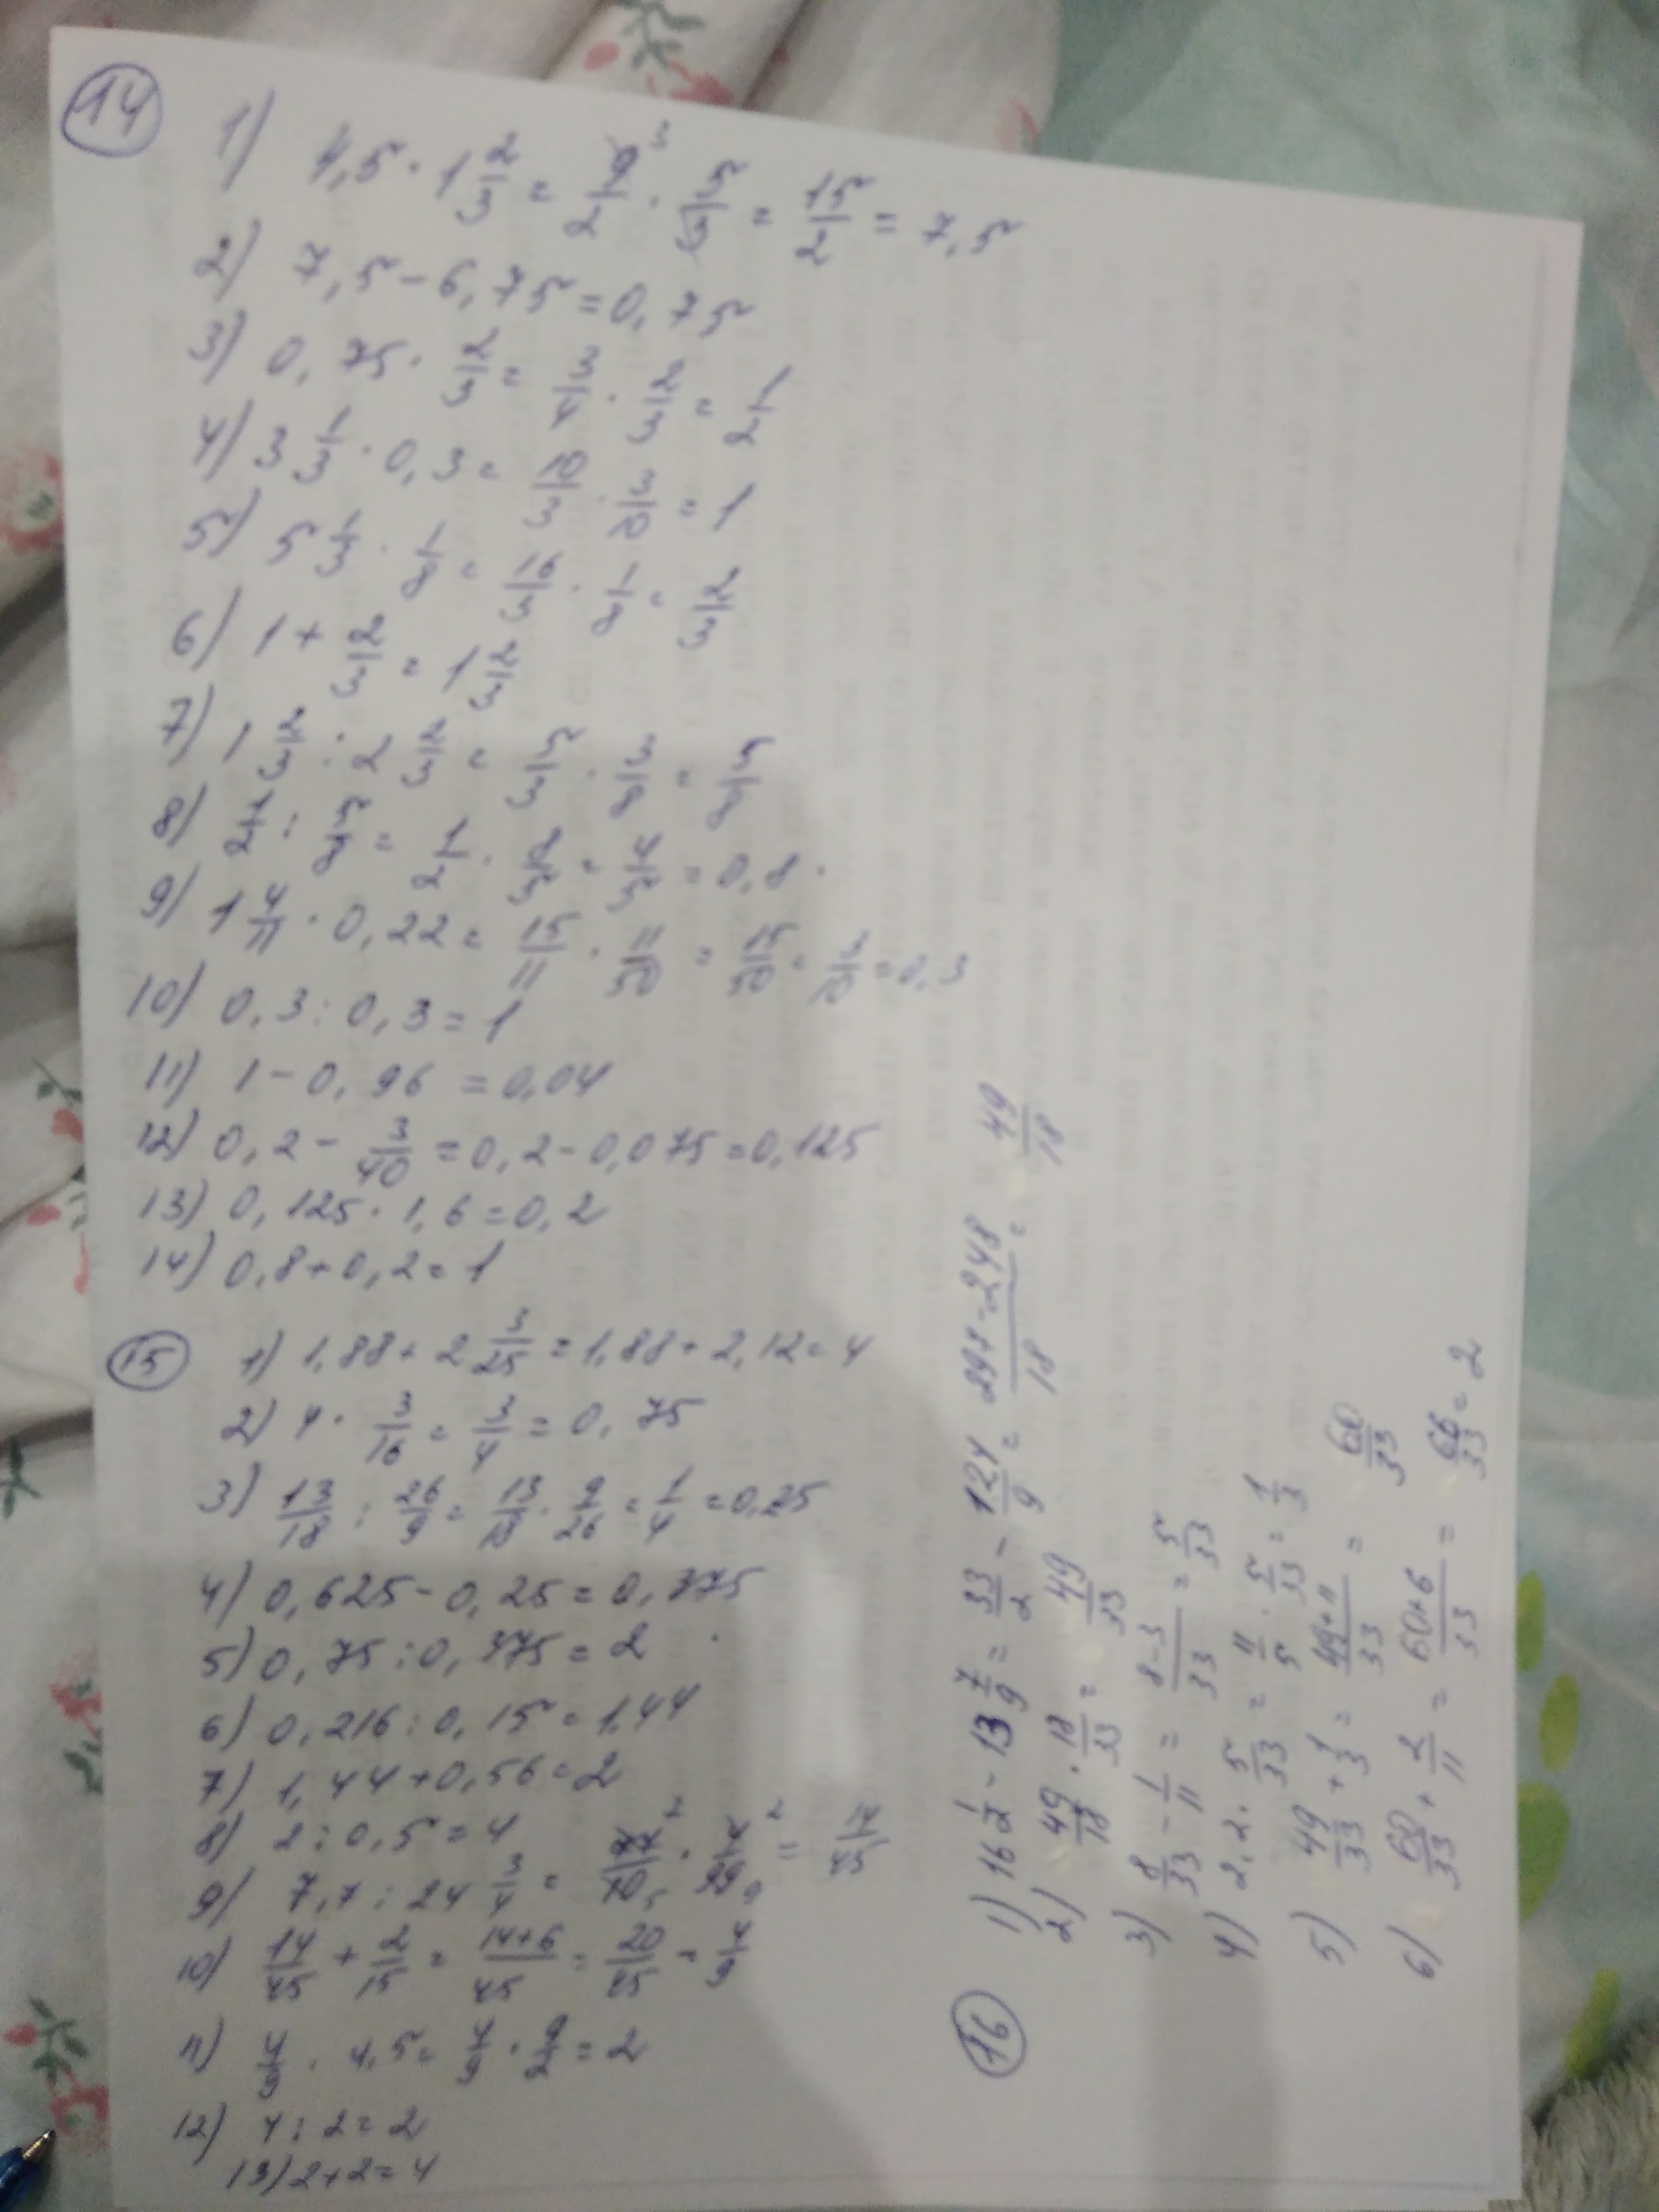 14
1) 4,5 · 1 2/3 = 9/2 · 5/3 = 15/2 = 7,5
2) 7,5 - 6,75 = 0,75
3) 0,75 · 2/3 = 3/4 · 2/3 = 1/2
4) 3 1/3 · 0,3 = 10/3 · 3/10 = 1
5) 5 1/3 · 1/8 = 16/3 · 1/8 = 2/3
6) 1 + 2/3 = 1 2/3
7) 1 2/3 : 2 2/3 = 5/3 · 3/8 = 5/8
8) 1/2 : 5/8 = 1/2 · 8/5 = 4/5 = 0,8
9) 1 4/11 · 0,22 = 15/11 · 11/50 = 15/50 = 3/10 = 0,3
10) 0,3 : 0,3 = 1
11) 1 - 0,96 = 0,04
12) 0,2 - 3/40 = 0,2 - 0,075 = 0,125
13) 0,125 · 1,6 = 0,2
14) 0,8 + 0,2 = 1
15
1) 1,88 + 2 3/25 = 1,88 + 2,12 = 4
2) 4 · 3/16 = 3/4 = 0,75
3) 13/18 : 26/9 = 13/18 · 9/26 = 1/4 = 0,25
4) 0,625 - 0,25 = 0,375
5) 0,75 : 0,375 = 2
6) 0,216 : 0,15 = 1,44
7) 1,44 + 0,56 = 2
8) 2 : 0,5 = 4
9) 7,7 : 24 3/4 = 77/10 · 4/99 = 14/45
10) 14/45 + 2/15 = 14+6/45 = 20/45 = 4/9
11) 4/9 · 4,5 = 4/9 · 9/2 = 2
12) 4 : 2 = 2
13) 2 + 2 = 4
16
1) 16 1/2 - 13 7/9 = 33/2 - 124/9 = -248/18 = 49/18
2) 49/18 · 18/33 = 49/33
3) 8/33 - 1/11 = 8-3/33 = 5/33
4) 2,2 · 5/33 = 11/5 · 5/33 = 1/3
5) 49/33 + 1/3 = 49+11/33 = 60/33
6) 60/33 + 2/11 = 60+6/33 = 66/33 = 2